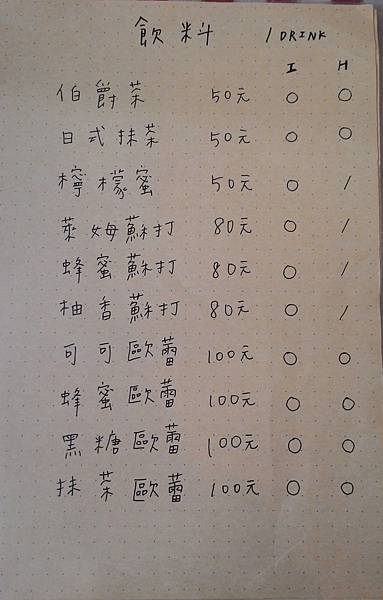 飲料 / DRINK
I H
伯爵茶 50元 ○ ○
日式抹茶 50元 ○ ○
檸檬蜜 50元 ○ /
萊姆蘇打 80元 ○ /
蜂蜜蘇打 80元 ○ /
柚香蘇打 80元 ○ /
可可歐蕾 100元 ○ ○
蜂蜜歐蕾 100元 ○ ○
黑糖歐蕾 100元 ○ ○
抹茶歐蕾 100元 ○ ○